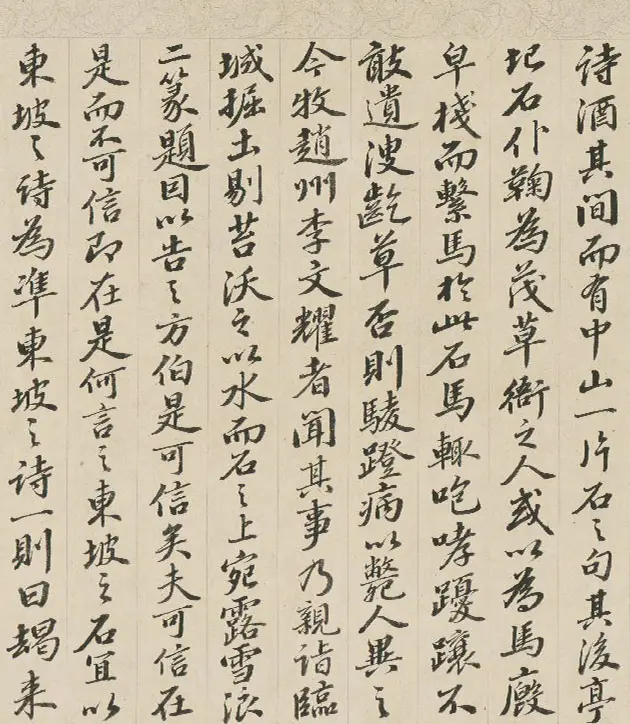 詩酒其間而有中山一片石之句其後亭
圮石仆鞠為茂草衙之人或以為馬廄
皁棧而繫馬於此石馬輙咆哮躩躟不
敢遺溲齕草否則騣蹬病以斃人異之
今牧趙州李文耀者聞其事乃親詣臨
城掘土剔苔沃之以水而石之上宛露雪浪
二篆題因以告之方伯是可信矣夫可信在
是而不可信即在是何言之東坡之石宜以
東坡之詩為準東坡之詩一則曰朅来